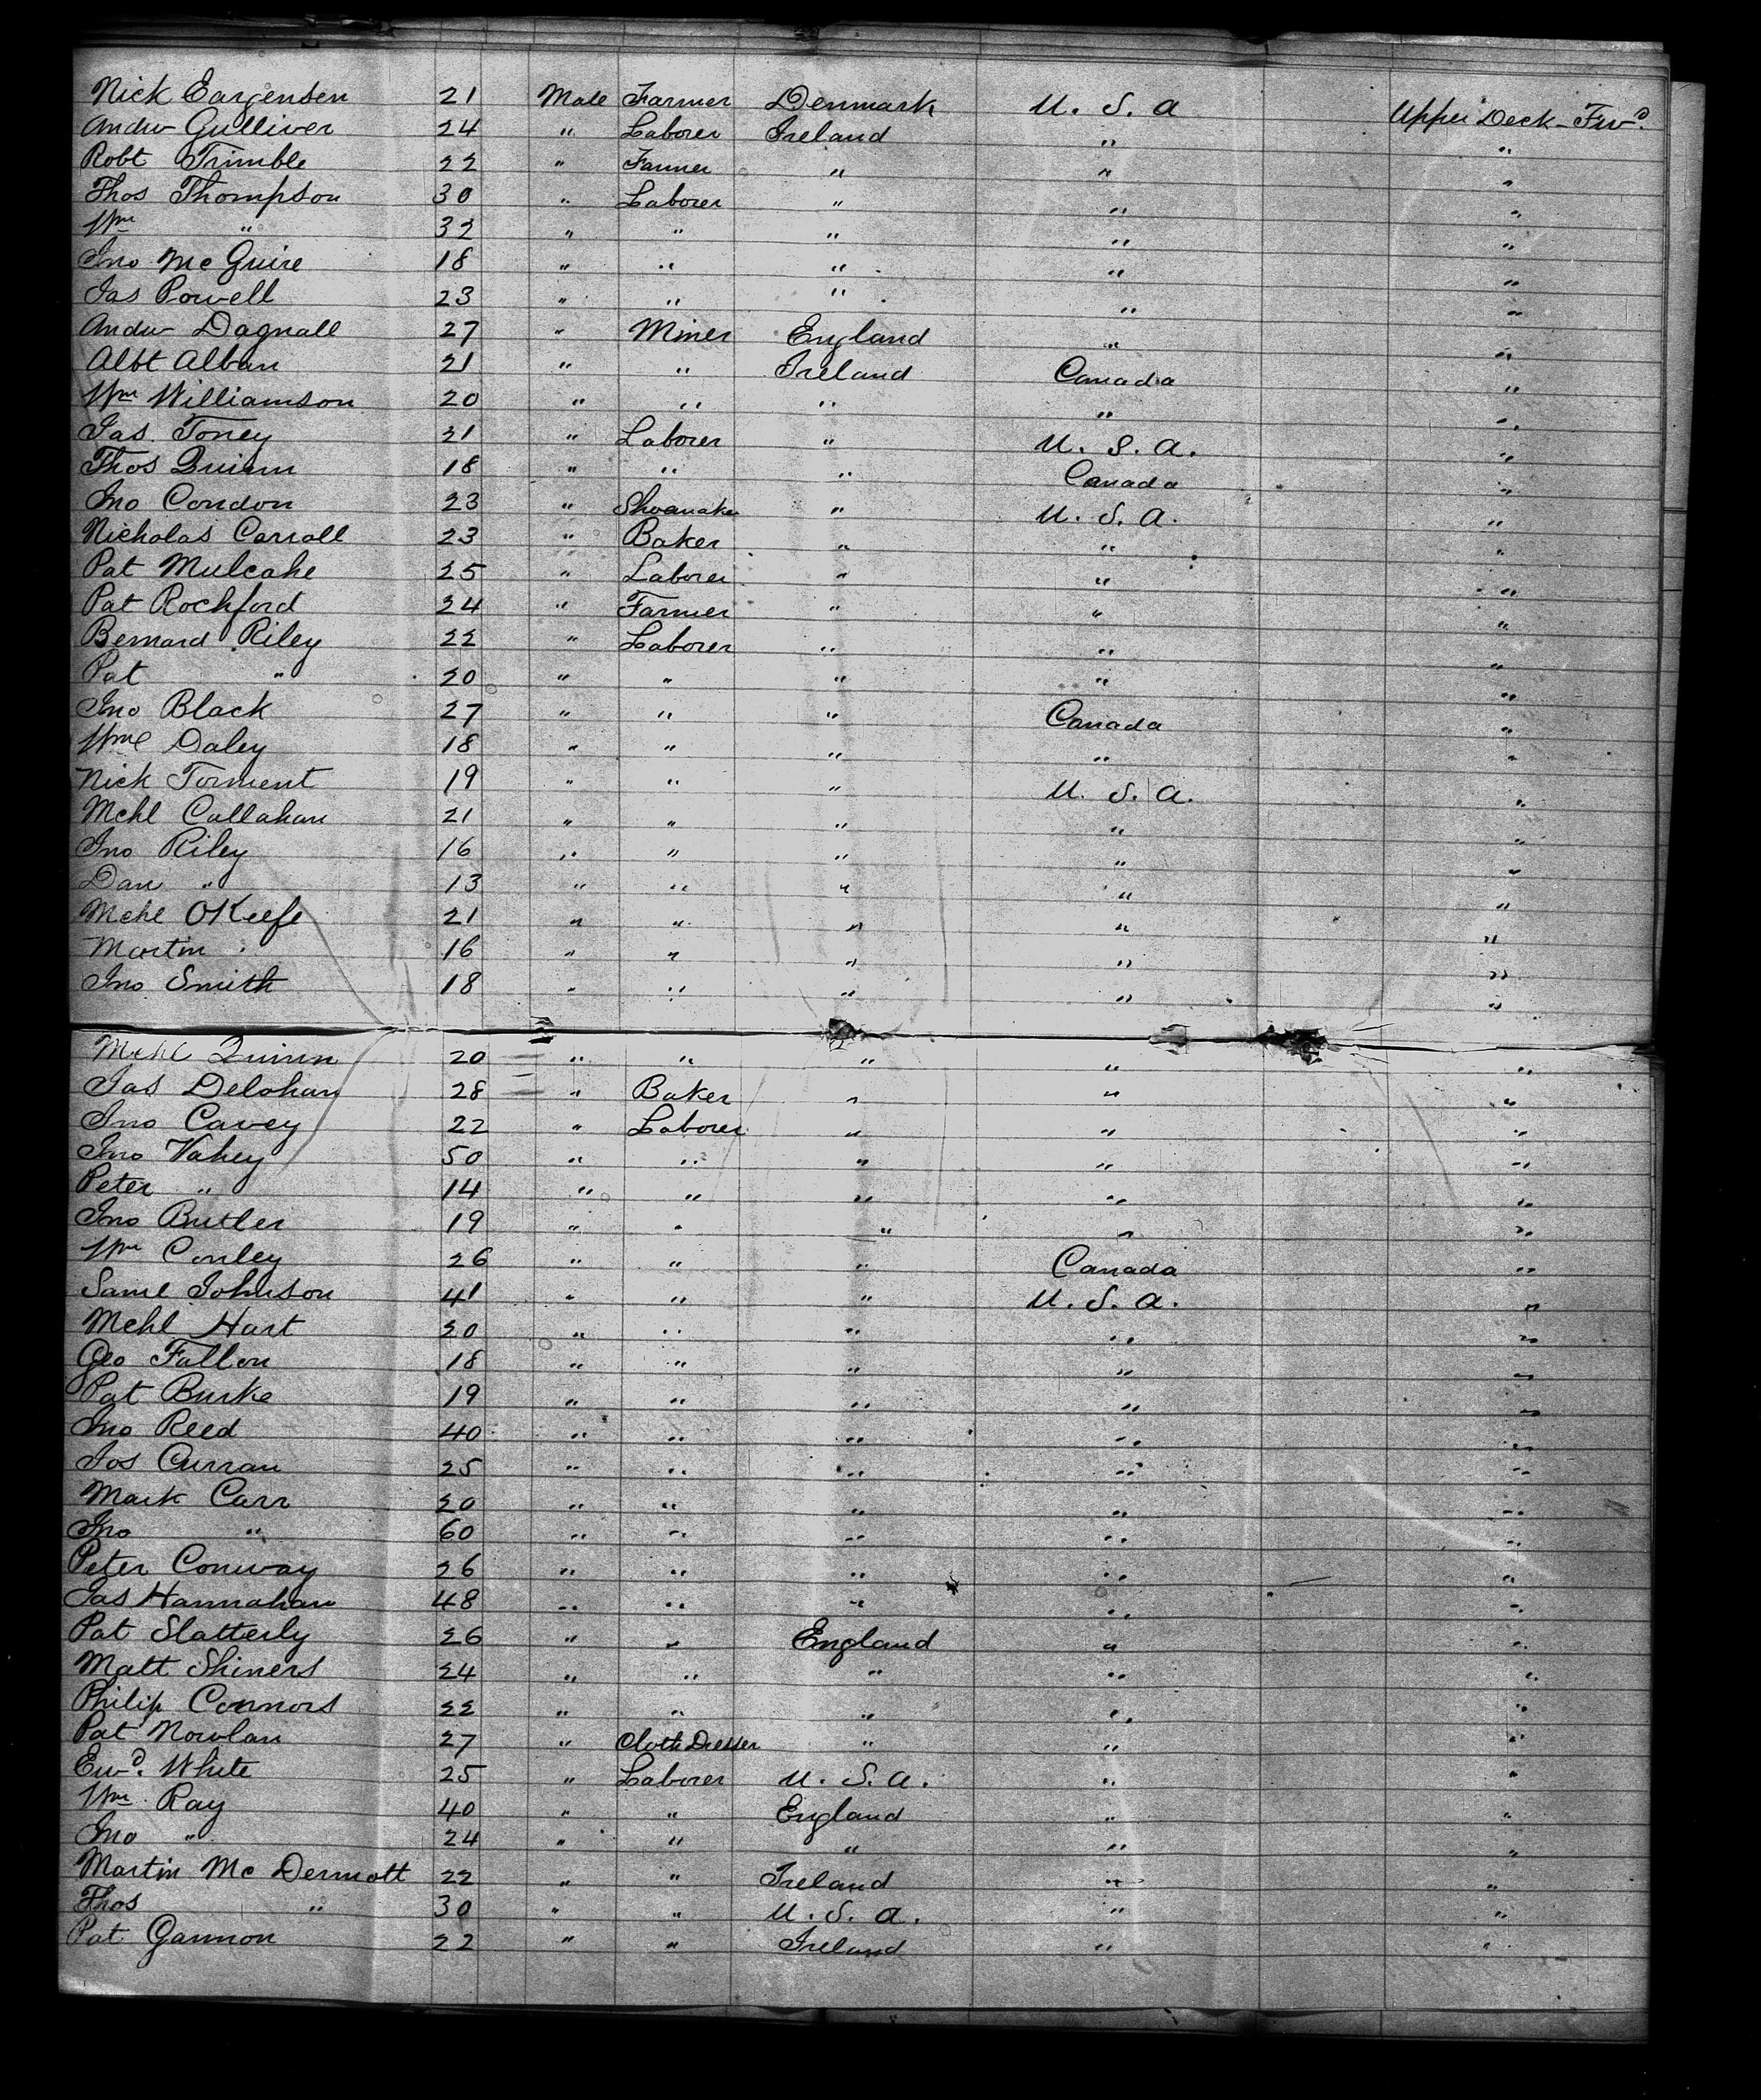 Nick Eargensen 21 Male Farmer Denmark U. S. a Upper Deck - Frwd.
Andw Gulliver 24 " Laborer Ireland " "
Robt Trimble 22 " Farmer " " "
Thos Thompson 30 " Laborer " " "
Wm " 32 " " " " "
Jno McGuire 18 " " " " "
Jas Powell 23 " " " " "
Andw Dagnall 27 " Miner England " "
Albt Alban 21 " " Ireland Canada "
Wm Williamson 20 " " " " "
Jas. Toney 21 " Laborer " U. S. A. "
Thos Quinn 18 " " " Canada "
Jno Condon 23 " Shoemaker " U. S. A. "
Nicholas Carroll 23 " Baker " " "
Pat Mulcahe 25 " Laborer " " "
Pat Rochford 24 " Farmer " " "
Bernard Riley 22 " Laborer " " "
Pat " 20 " " " " "
Jno Black 27 " " " Canada "
Wm Daley 18 " " " " "
Nick Torment 19 " " " U. S. A. "
Mchl Callahan 21 " " " " "
Jno Riley 16 " " " " "
Dan " 13 " " " " "
Mchl OKeefe 21 " " " " "
Martin " 16 " " " " "
Jno Smith 18 " " " " "
Mchl Quinn 20 " " " " "
Jas Delohan 28 " Baker " " "
Jno Cavey 22 " Laborer " " "
Jno Vahey 50 " " " " "
Peter " 14 " " " " "
Jno Butler 19 " " " " "
Wm Conley 26 " " " Canada "
Saml Johnson 41 " " " U. S. A. "
Mchl Hart 20 " " " " "
Geo Fallon 18 " " " " "
Pat Burke 19 " " " " "
Jno Reed 40 " " " " "
Jos Curran 25 " " " " "
Mark Carr 20 " " " " "
Jno " 60 " " " " "
Peter Conway 26 " " " " "
Jas Hannahan 48 " " " " "
Pat Slatterly 26 " " England " "
Matt Shiners 24 " " " " "
Philip Connors 22 " " " " "
Pat Nowlan 27 " Cloth Dresser " " "
Ewd. White 25 " Laborer U. S. A. " "
Wm. Ray 40 " " England " "
Jno " 24 " " " " "
Martin McDermott 22 " " Ireland " "
Thos " 30 " " U. S. A. " "
Pat Gannon 22 " " Ireland " "